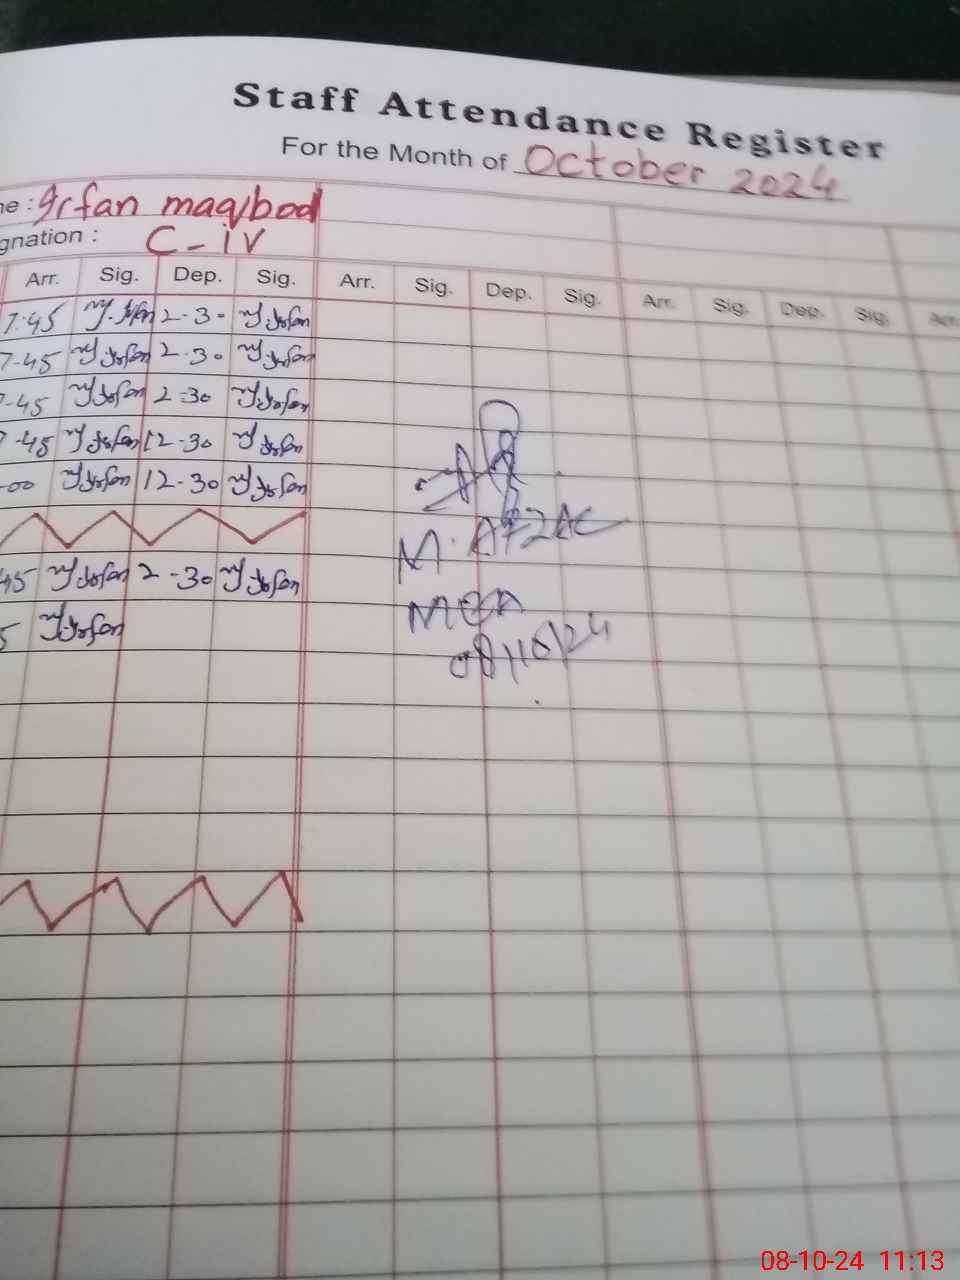 Staff Attendance Register
For the Month of October 2024
me : Irfan maqbool
gnation : C - iv
Arr. Sig. Dep. Sig. Arr. Sig. Dep. Sig. Arr. Sig. Dep. Sig. Arr.
7:45 M.Irfan 2-30 M Irfan
7-45 M Irfan 2-30 M Irfan
7-45 M Irfan 2-30 M Irfan
7-45 M Irfan 12-30 M Irfan
-00 M Irfan 12-30 M Irfan
45 M Irfan 2-30 M Irfan
5 M Irfan
M. AFZAL
MEA
08/10/24
08-10-24 11:13